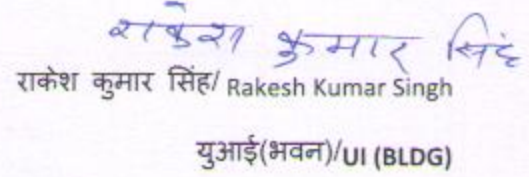 राकेश कुमार सिंह
राकेश कुमार सिंह/ Rakesh Kumar Singh
युआई(भवन)/UI (BLDG)